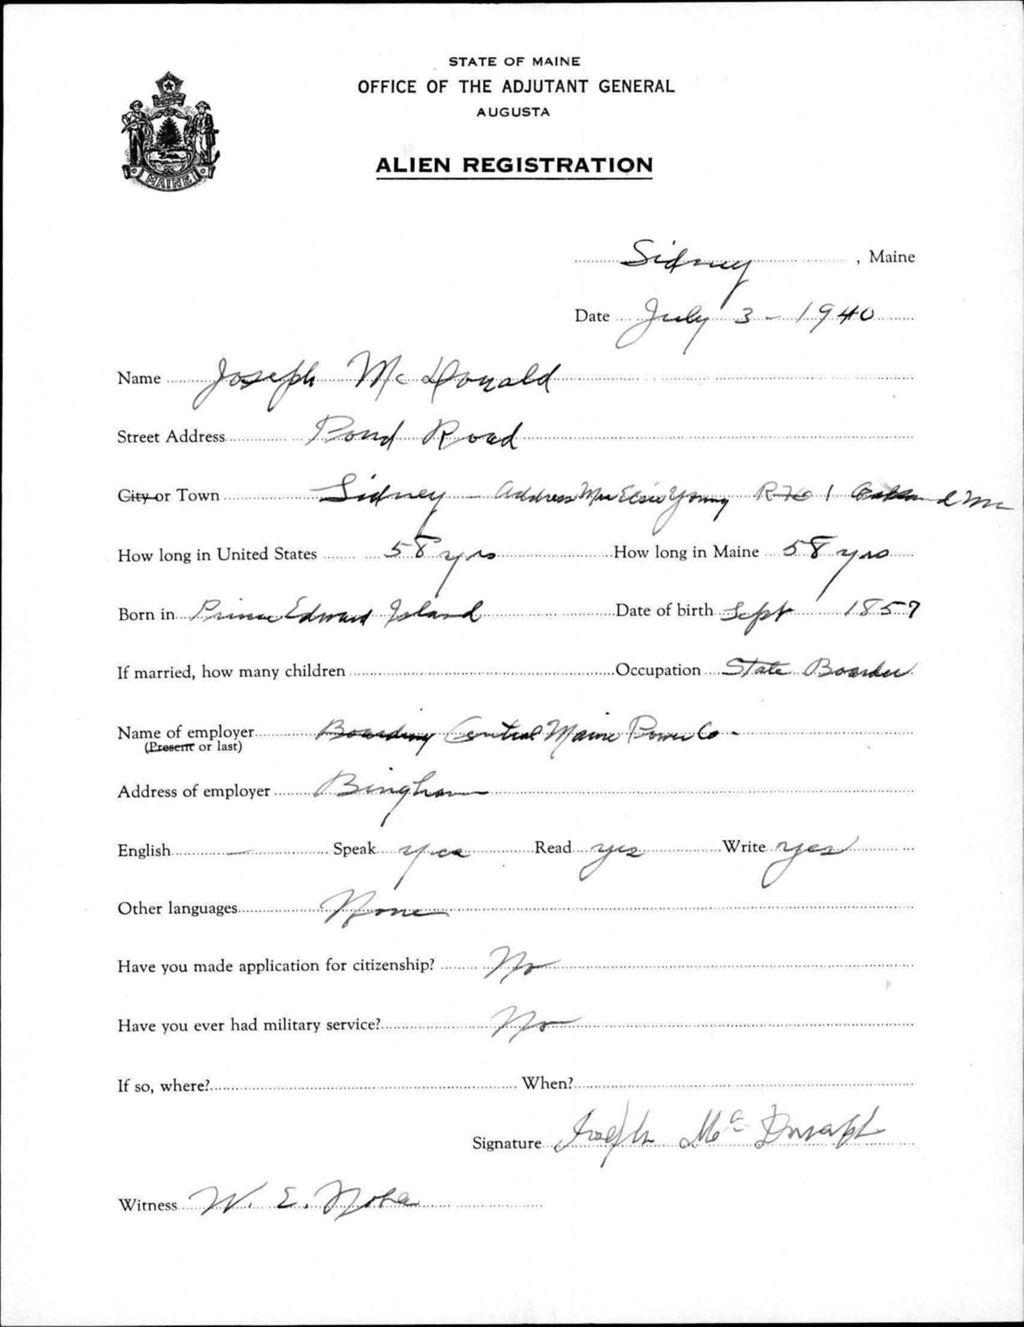 STATE OF MAINE
OFFICE OF THE ADJUTANT GENERAL
AUGUSTA
MAINE
ALIEN REGISTRATION
Sidney, Maine
Date July 3 - 1940
Name Joseph McDonald
Street Address Pond Road
City or Town Sidney - Address Mrs Elsie Young 1 Oakland Me
How long in United States 58 yrs How long in Maine 58 yrs
Born in Prince Edward Island Date of birth Sept 1857
If married, how many children Occupation State Boarder
Name of employer Boarding Central Maine Power Co -
(Present or last)
Address of employer Bingham
English - Speak yes Read yes Write yes
Other languages None
Have you made application for citizenship? No
Have you ever had military service? No
If so, where? When?
Signature Joseph McDonald
Witness W. E.